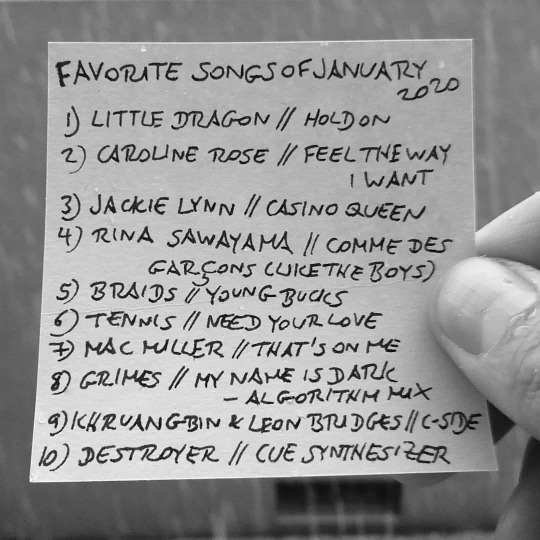 FAVORITE SONGS OF JANUARY
2020
1) LITTLE DRAGON // HOLD ON
2) CAROLINE ROSE // FEEL THE WAY
I WANT
3) JACKIE LYNN // CASINO QUEEN
4) RINA SAWAYAMA // COMME DES
GARÇONS (LIKE THE BOYS)
5) BRAIDS // YOUNG BUCKS
6) TENNIS // NEED YOUR LOVE
7) MAC MILLER // THAT'S ON ME
8) GRIMES // MY NAME IS DARK
- ALGORITHM MIX
9) KHRUANGBIN & LEON BRIDGES // C-SIDE
10) DESTROYER // CUE SYNTHESIZER